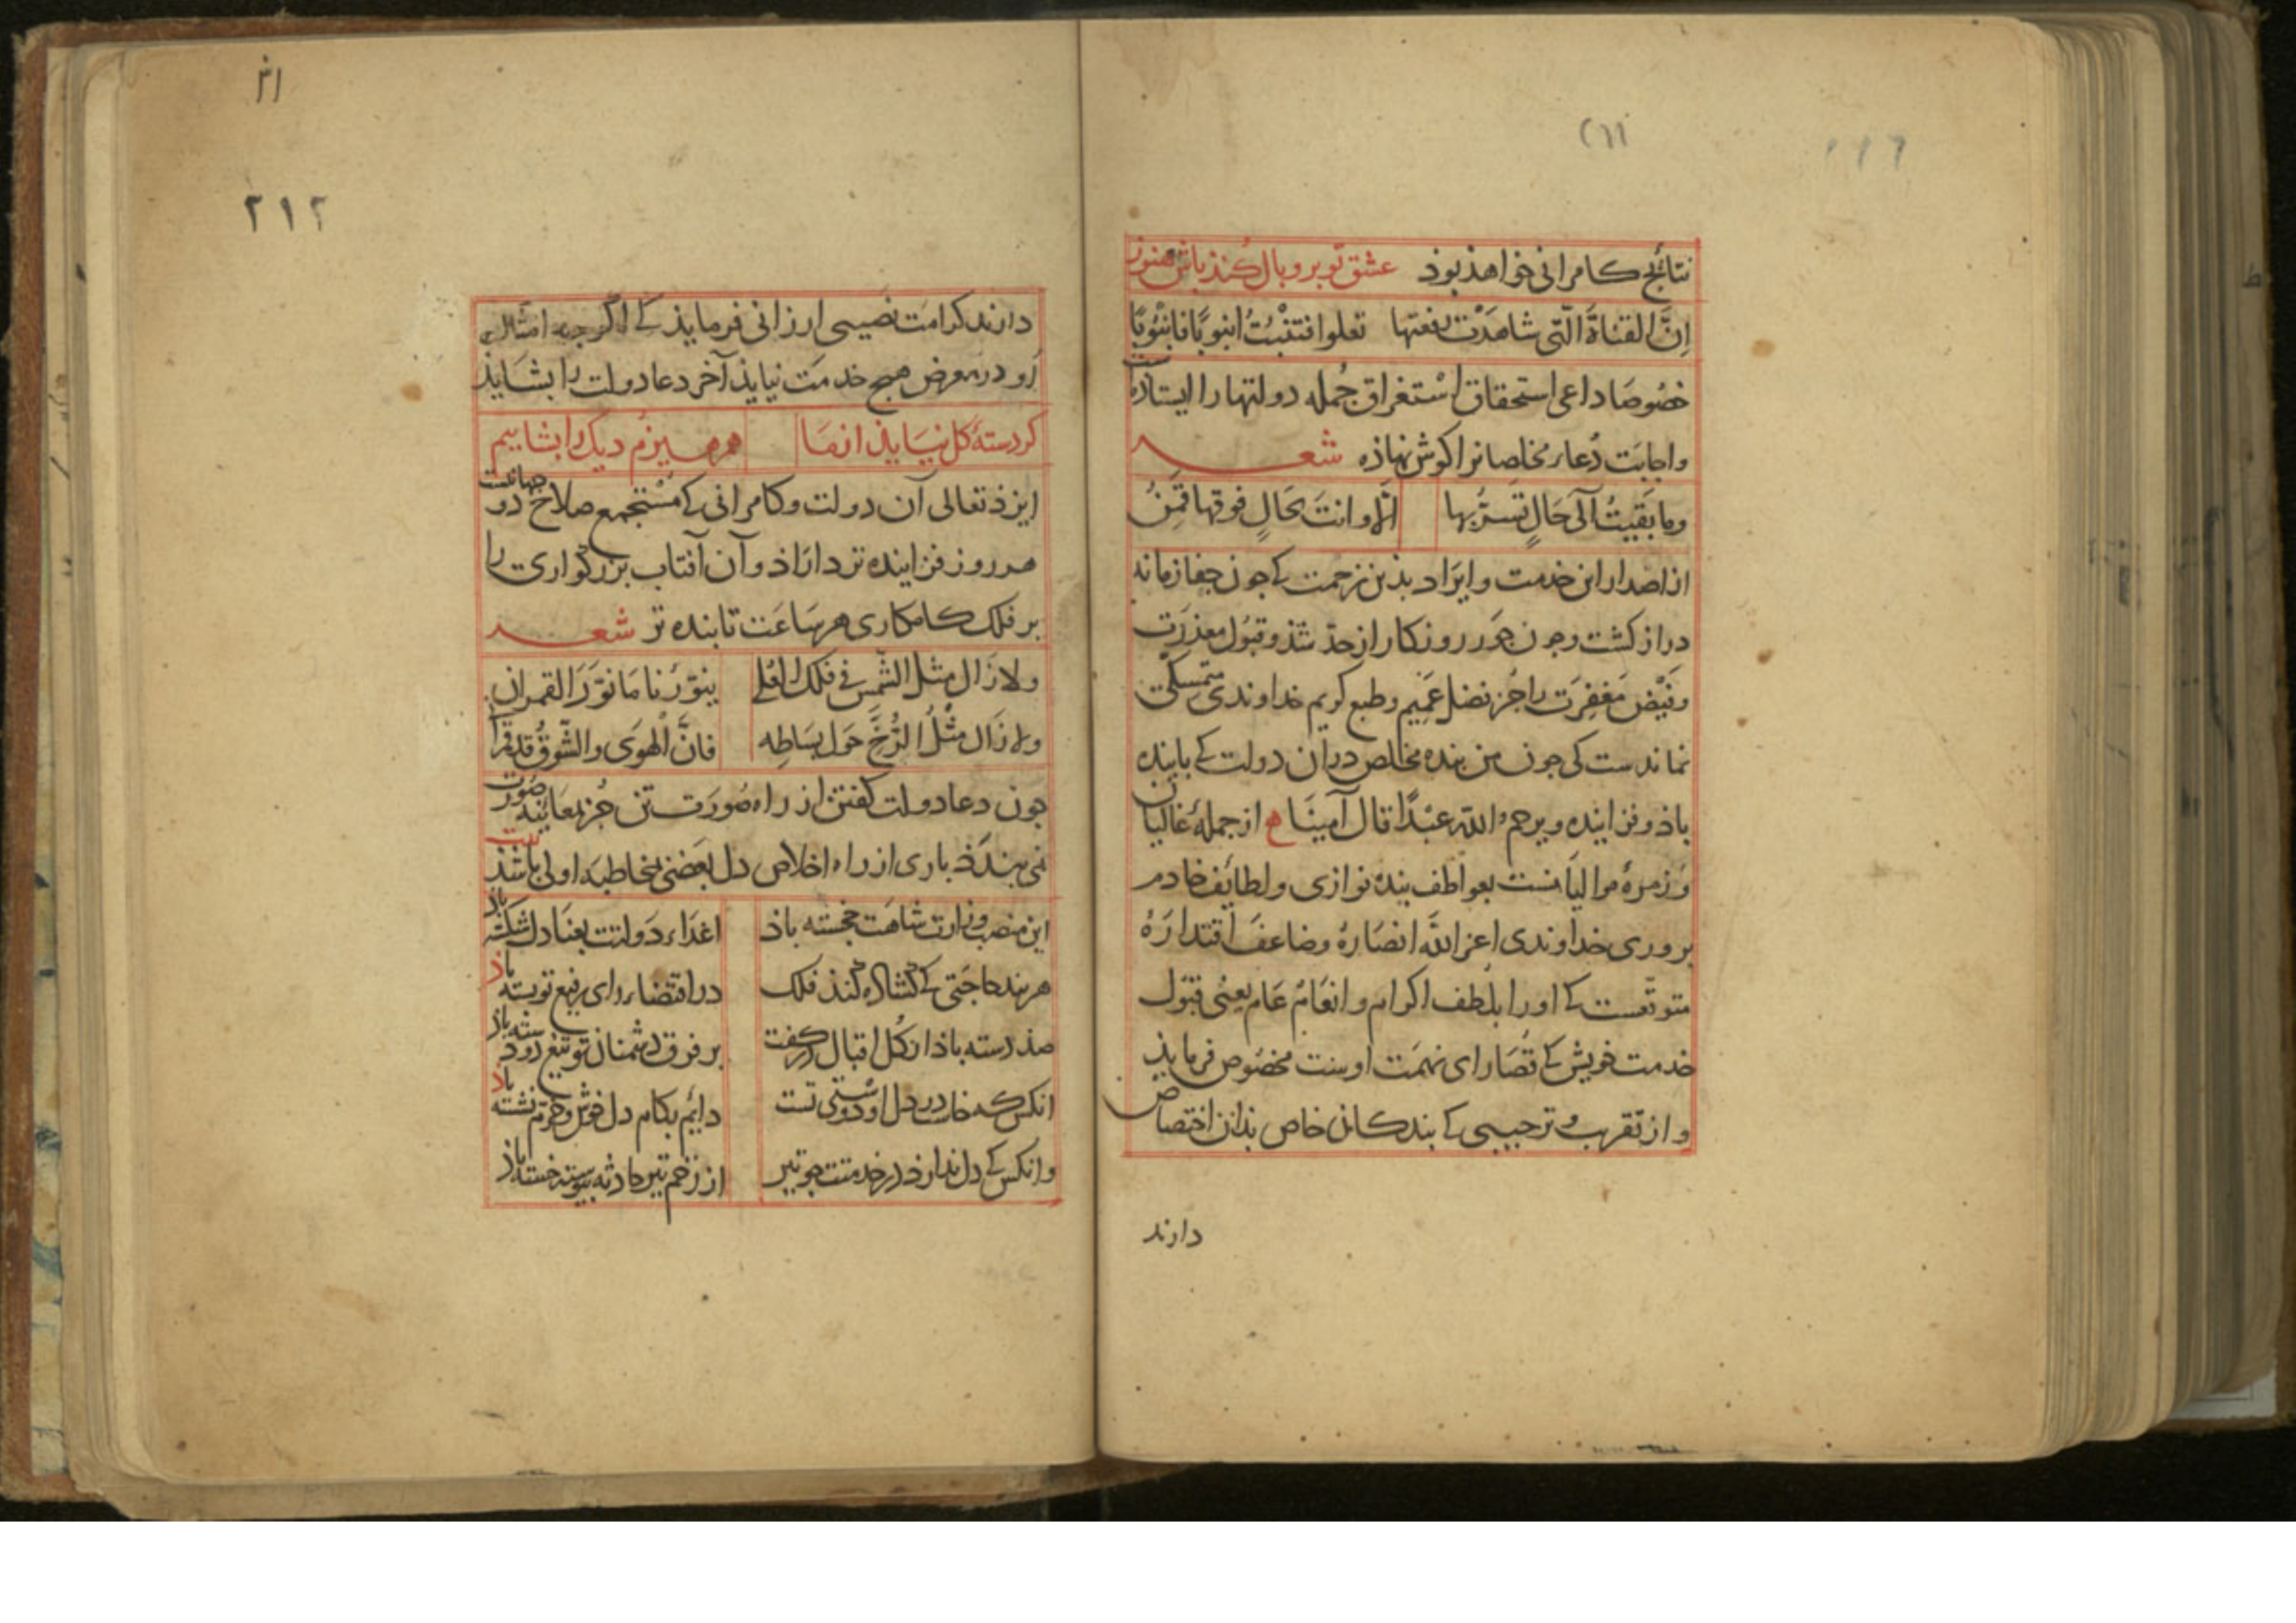 ٢١١
١١٦
نتائج کامرانی خواهذ بوذ عشق تو برو بال کنذ باش هنوز
اِنَّ القناةَ الّتی شاهَدْتَ رفعتها تعلوا فتنْبُتُ انبوبًا فانبُوبًا
خصُوصَا داعی استحقاق اسْتغراق جُمله دولتها را ایستاده است
واجابَت دُعاء مخلصانرا کوش نهاذه شعر
وما بَقیِتُ آلی حَالٍ تسرّبها الّا وانتَ بحَالٍ فوقها قمِنُ
از اصدار این خدمت و ایرَاد بذین زحمت کی جون جفا زمانه
دراز کشت وجون جَور روزکار از حدّ شذ و قبُول معذرَت
وفَیْض مَغفِرَت را جُز فضل عَمِیم وطبع کریم خداوندی متمسکی
نماندست کی جون من بنده مخلص دران دولت کی باینده
باذ وفزاینده ویرحمُ اللّه عبْدًا قال آمینَا ه از جملۀ غالیان
وزمرۀ موالیانست بعواطف بنده نوازی ولطایف خادم
بروری خداوندی اعز اللّه انصَارهُ وضاعفَ اقتدارَهُ
متوقّعست کی اورا بلطف اکرام وانعَام عَام یعنی قبَول
خدمت خویش کی قُصَارای نهمَت اوست مخصُوص فرمایذ
واز تقرب و ترحیبی کی بندکان خاص بذان اختصاص
دارند
٢١٢
دارند کرامت نصیبی ارزانی فرمایذ کی اکر جه امثال
اَو در معرض هیج خدمَت نیایذ آخر دعا دولت را بشَایذ
کر دستۀ کل نیَایذ از مَا هم هیزم دیک را بشاییم
ایزذ تعالی آن دولت وکامرانی کی مُسْتجمِع صلاح دو جهانست
هر روز فزاینده تر داراذ وآن آفتاب بزرکواری را
بر فلک کامکاری هر سَاعَت تابنده تر شعر
ولا زَال مثل الشّمس فی فلک العُلی ینوّرنا مَا نوّرَ القمران
ولا زَال مثْلُ الرُّخّ حَول بسَاطِه فانَّ الْهوَی والشّوقُ قد قمرا
جون دعا دولت کفتن از راه صُورَت تن جُز بمعَاینه صُورت
نمی بندَذ باری از راه اخلاص دل بعضی مخاطبَه اولی باشذ بیت
این منصب وزارت شاهَت خجسته باذ اعدَاء دَولتت بعنَا دل شکسته باذ
هر بند حاجَتی کی کشاده کنذ فلک در اقتضاء رای رفیع تو بسته باذ
صذ دسته باذ از کُل اقبال در کفت بر فرق دشمنان تو تیغ دو دسته باذ
انکس که خاست در دل او دوْستی تست دایم بکام دل خوش وخرّم نشسته باذ
وانکس کی دل نداز در خدمتت جو تیر از زخم تیر حادثه بیوسته خسته باذ